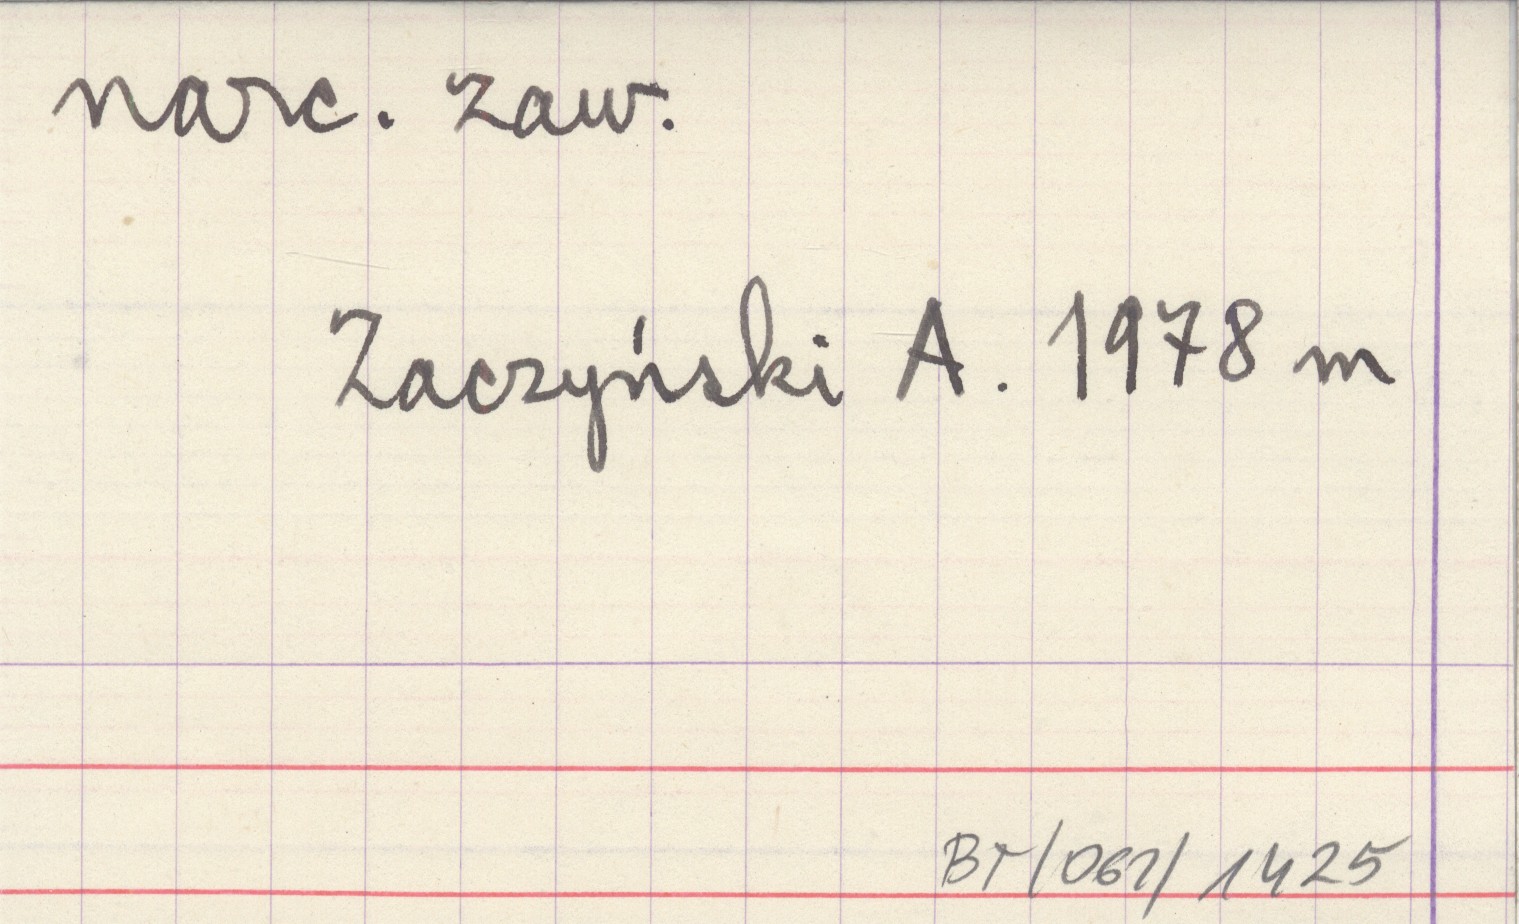 narc. zaw.
Zaczyński A. 1978 m
BT/061/1425